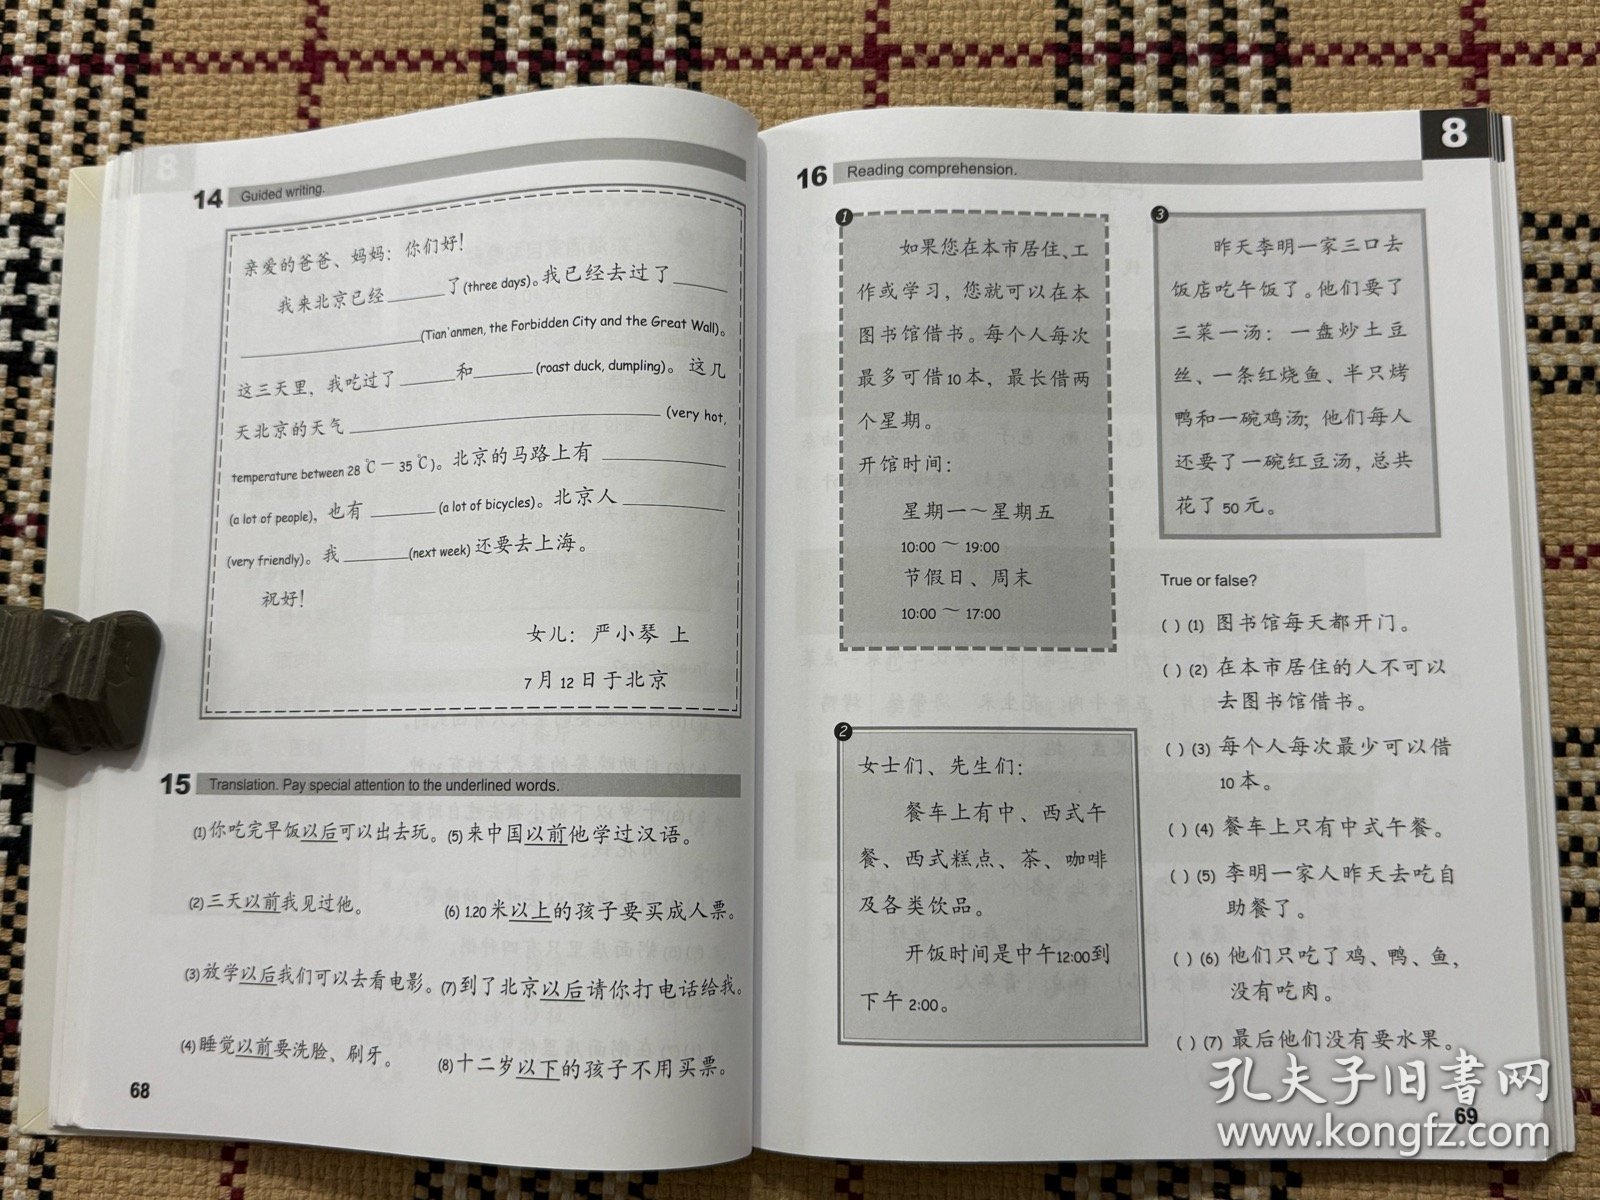 8
14 Guided writing.
亲爱的爸爸、妈妈：你们好！
我来北京已经______了(three days)。我已经去过了______
______(Tian'anmen, the Forbidden City and the Great Wall)。
这三天里，我吃过了______和______(roast duck, dumpling)。这几
天北京的天气______(very hot,
temperature between 28℃－35℃)。北京的马路上有______
(a lot of people)，也有______(a lot of bicycles)。北京人______
(very friendly)。我______(next week)还要去上海。
祝好！
女儿：严小琴 上
7月12日于北京
15 Translation. Pay special attention to the underlined words.
(1)你吃完早饭以后可以出去玩。
(2)三天以前我见过他。
(3)放学以后我们可以去看电影。
(4)睡觉以前要洗脸、刷牙。
(5)来中国以前他学过汉语。
(6)1.20米以上的孩子要买成人票。
(7)到了北京以后请你打电话给我。
(8)十二岁以下的孩子不用买票。
68
8
16 Reading comprehension.
1
如果您在本市居住、工
作或学习，您就可以在本
图书馆借书。每个人每次
最多可借10本，最长借两
个星期。
开馆时间：
星期一～星期五
10:00～19:00
节假日、周末
10:00～17:00
2
女士们、先生们：
餐车上有中、西式午
餐、西式糕点、茶、咖啡
及各类饮品。
开饭时间是中午12:00到
下午2:00。
3
昨天李明一家三口去
饭店吃午饭了。他们要了
三菜一汤：一盘炒土豆
丝、一条红烧鱼、半只烤
鸭和一碗鸡汤；他们每人
还要了一碗红豆汤，总共
花了50元。
True or false?
( ) (1) 图书馆每天都开门。
( ) (2) 在本市居住的人不可以
去图书馆借书。
( ) (3) 每个人每次最少可以借
10本。
( ) (4) 餐车上只有中式午餐。
( ) (5) 李明一家人昨天去吃自
助餐了。
( ) (6) 他们只吃了鸡、鸭、鱼，
没有吃肉。
( ) (7) 最后他们没有要水果。
69
孔夫子旧书网
www.kongfz.com